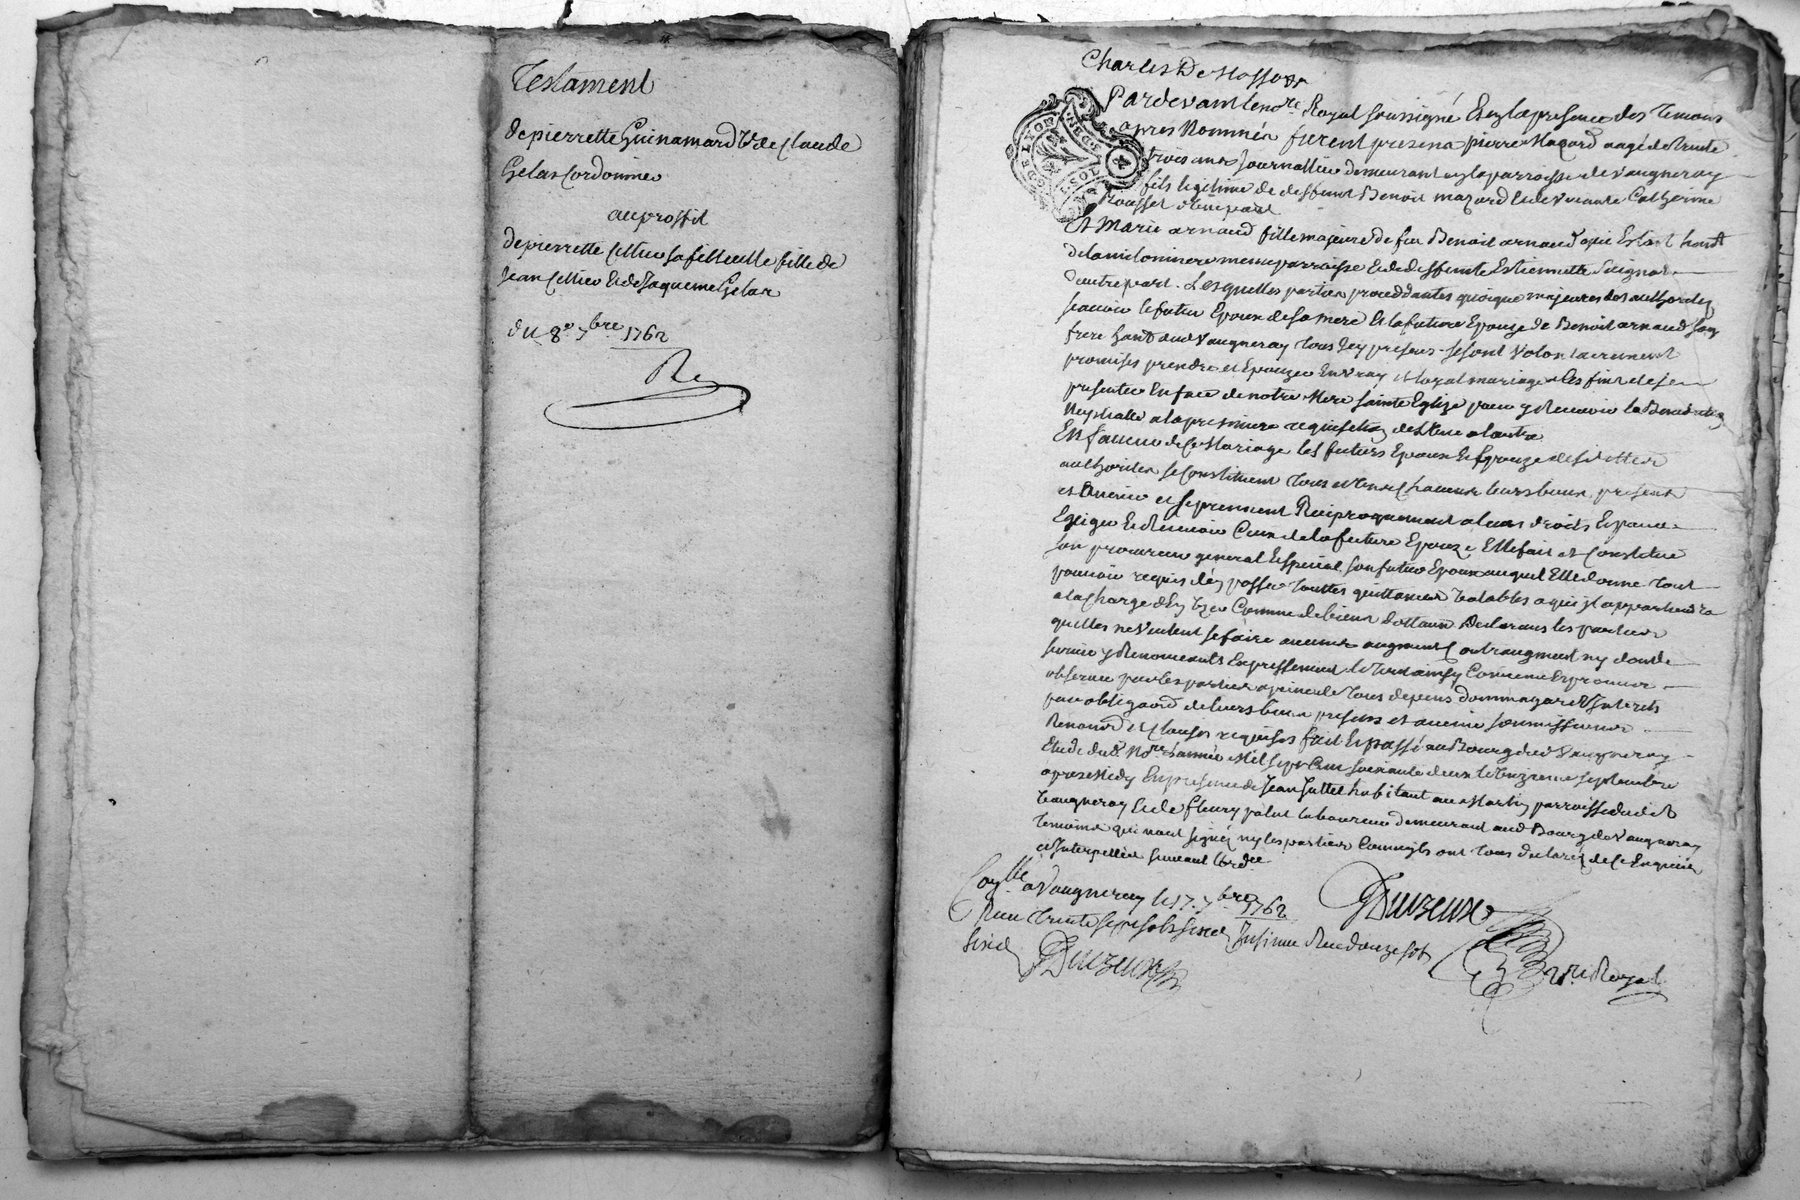 Testament
de pierrette Guinamard Ve de Claude
Gelas Cordonnier
au proffit
de pierrette Cellier sa fillieulle fille de
Jean Cellier et de Jaqueme Gelas
du 8e 7bre 1762
Charles De
GEN DE LYON
DEUX SOLS
Pardevant le nore Royal soussigné et en la presence des temoins
apres Nommés furent presens pierre Mazard aagé de trente
trois ans journallier demeurant en la parroisse de vaugneray
fils legitime de deffunt Benoit mazard et de vivante Catherine
Rousset d'une part
Et Marie arnaud fille majeure de feu Benoit arnaud qui Estoit hant
de la meme parroisse et de deffunte Estiennette
d'autre part. Lesquelles parties proceddantes quoique majeures des authorites
scavoir le futur Epoux de sa mere et la future Epouze de Benoit arnaud son
frere hant aud vaugneray tous icy presens. se sont volontairement
promises prendre et Epouzer en vray et loyal mariage a ces fins de se
presenter En face de notre Mere sainte Eglize pour y Recevoir la Benediction
Nuptialle a la premiere requisition de l'une a l'autre
En faveur de ce Mariage les futurs Epoux et Epouze
authorites se Constituent tous et un chacuns leurs biens presens
et avenir et se prennent Reciproquement a leurs droits Et pour
Exiger et Recevoir Ceux de la future Epouze Elle fait et Constitue
son procureur general Et special son futur Epoux auquel Elle donne tout
pouvoir requis d'en passer touttes quittances valables a qui il appartiendra
a la charge d'en user Comme de biens dottaux Declarans les parties
quelles ne veulent se faire aucuns augment Contraugment ny don de
survie y Renonceants Expressement et tout ainsy Convenu Et promis
observer par les parties a peine de tous depens dommages et interets
par obligaon de leurs biens presens et avenir soumissions
Renonon et clauses requises fait Et passé au Bourg dud vaugneray
Etude dud Nore l'année Mil sept Cent soixante deux le septembre
apres Midy En presence de Jean habitant au Martin parroisse dud
vaugneray et de fleury laboureur demeurant aud Bourg de vaugneray
temoins qui n'ont signé ny les parties Comme ils ont tous declaré de ce Enquis
et Interpellés suivant l'ordce
Conlle a vaugneray le 17. 7bre 1762
Reçu trente sept sols six d Insinué Reçu douze sols
six d
Duzeux
Nre Royal